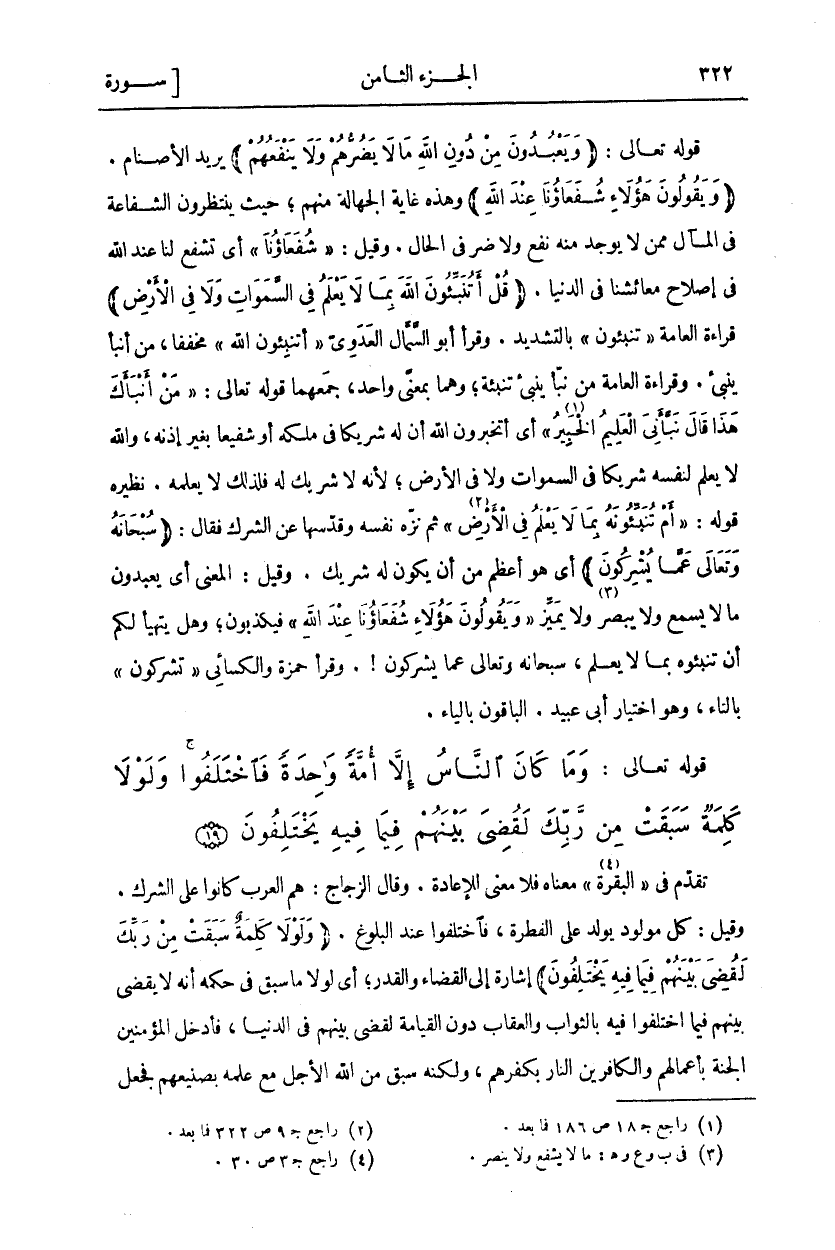 ٣٢٢ الجزء الثامن [ سورة
قوله تعالى : ﴿ وَيَعْبُدُونَ مِنْ دُونِ اللهِ مَا لَا يَضُرُّهُمْ وَلَا يَنْفَعُهُمْ ﴾ يريد الأصنام .
﴿ وَيَقُولُونَ هَؤُلَاءِ شُفَعَاؤُنَا عِنْدَ اللهِ ﴾ وهذه غاية الجهالة منهم ؛ حيث ينتظرون الشفاعة
فى المآل ممن لا يوجد منه نفع ولا ضر فى الحال . وقيل : « شُفَعَاؤُنَا » أى تشفع لنا عند الله
فى إصلاح معائشنا فى الدنيا . ﴿ قُلْ أَتُنَبِّئُونَ اللهَ بِمَا لَا يَعْلَمُ فِى السَّمَوَاتِ وَلَا فِى الْأَرْضِ ﴾
قراءة العامة « تنبئون » بالتشديد . وقرأ أبو السَّمَّال العَدَوِىّ « أتنبئون الله » مخففا ، من أنبأ
ينبئ . وقراءة العامة من نبّأ ينبئ تنبئة ؛ وهما بمعنًى واحد ، جمعهما قوله تعالى : « مَنْ أَنْبَأَكَ
هَذَا قَالَ نَبَّأَنِىَ الْعَلِيمُ الْخَبِيرُ (١) » أى أتخبرون الله أن له شريكا فى ملكه أو شفيعا بغير إذنه ، والله
لا يعلم لنفسه شريكا فى السموات ولا فى الأرض ؛ لأنه لا شريك له فلذلك لا يعلمه . نظيره
قوله : « أَمْ تُنَبِّئُونَهُ بِمَا لَا يَعْلَمُ فِى الْأَرْضِ (٢) » ثم نزّه نفسه وقدّسها عن الشرك فقال : ﴿ سُبْحَانَهُ
وَتَعَالَى عَمَّا يُشْرِكُونَ ﴾ أى هو أعظم من أن يكون له شريك . وقيل : المعنى أى يعبدون
ما لا يسمع ولا يبصر ولا يميّز (٣) « وَيَقُولُونَ هَؤُلَاءِ شُفَعَاؤُنَا عِنْدَ اللهِ » فيكذبون ؛ وهل يتهيأ لكم
أن تنبئوه بما لا يعلم ، سبحانه وتعالى عما يشركون ! . وقرأ حمزة والكسائى « تشركون »
بالتاء ، وهو اختيار أبى عبيد . الباقون بالياء .
قوله تعالى : وَمَا كَانَ ٱلنَّاسُ إِلَّآ أُمَّةً وَٰحِدَةً فَٱخْتَلَفُوا۟ ۚ وَلَوْلَا
كَلِمَةٌ سَبَقَتْ مِن رَّبِّكَ لَقُضِىَ بَيْنَهُمْ فِيمَا فِيهِ يَخْتَلِفُونَ ﴿١٩﴾
تقدّم فى « البقرة (٤) » معناه فلا معنى للإعادة . وقال الزجاج : هم العرب كانوا على الشرك .
وقيل : كل مولود يولد على الفطرة ، فٱختلفوا عند البلوغ . ﴿ وَلَوْلَا كَلِمَةٌ سَبَقَتْ مِنْ رَبِّكَ
لَقُضِىَ بَيْنَهُمْ فِيمَا فِيهِ يَخْتَلِفُونَ ﴾ إشارة إلى القضاء والقدر ؛ أى لولا ما سبق فى حكمه أنه لا يقضى
بينهم فيما اختلفوا فيه بالثواب والعقاب دون القيامة لقضى بينهم فى الدنيا ، فأدخل المؤمنين
الجنة بأعمالهم والكافرين النار بكفرهم ، ولكنه سبق من الله الأجل مع علمه بصنيعهم فجعل
(١) راجع ج ١٨ ص ١٨٦ فما بعد . (٢) راجع ج ٩ ص ٣٢٢ فما بعد .
(٣) فى ب و ع و ه : ما لا يشفع ولا ينصر . (٤) راجع ج ٣ ص ٣٠ .